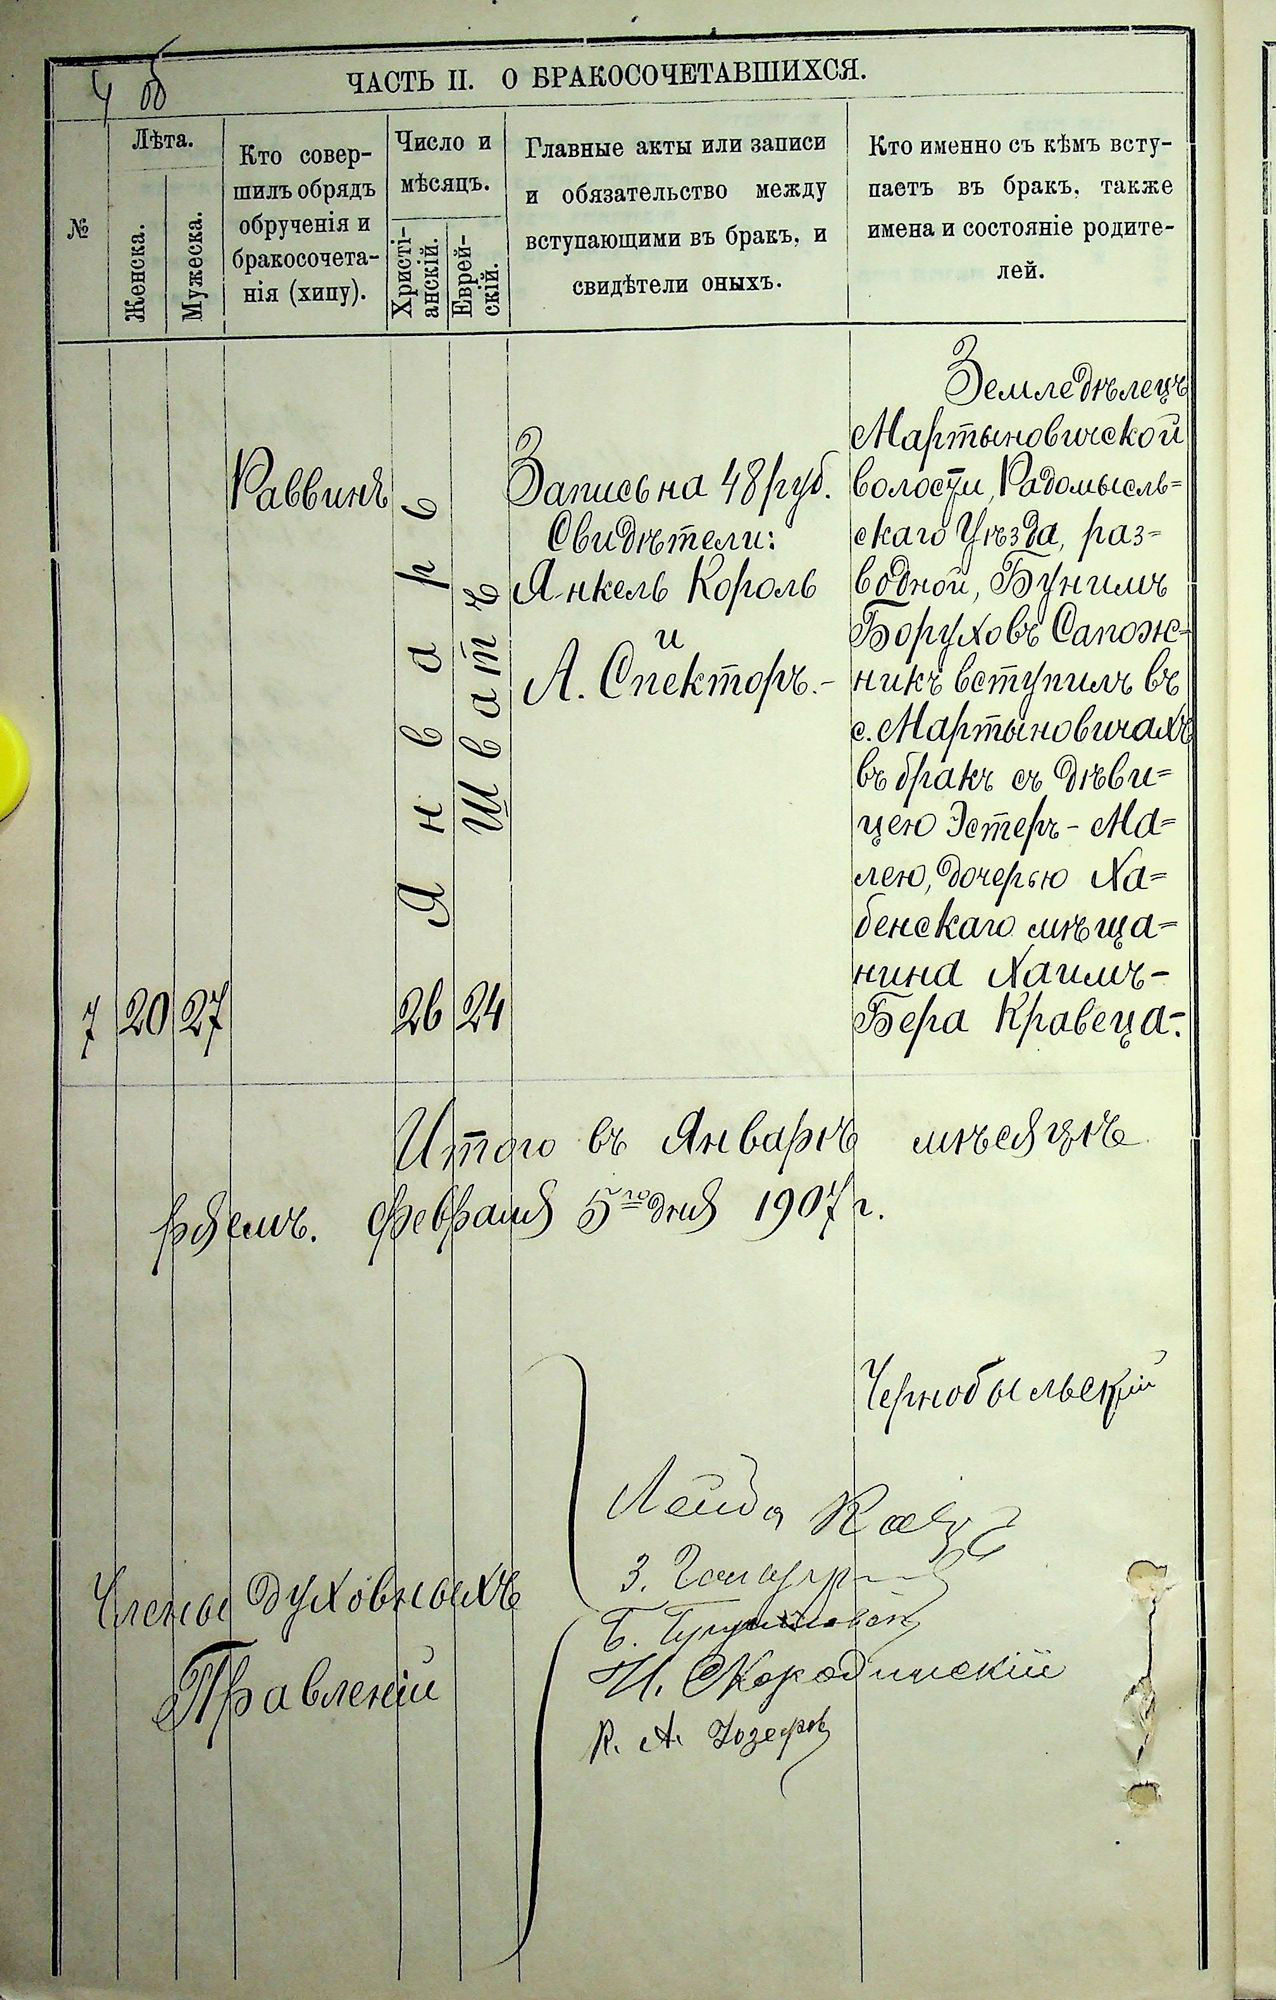 4 об
ЧАСТЬ II. О БРАКОСОЧЕТАВШИХСЯ.
№
Лѣта.
Женска.
Мужеска.
Кто совер-
шилъ обрядъ
обрученія и
бракосочета-
нія (хипу).
Число и
мѣсяцъ.
Христі-
анскій.
Еврей-
скій.
Главные акты или записи
и обязательство между
вступающими въ бракъ, и
свидѣтели оныхъ.
Кто именно съ кѣмъ всту-
паетъ въ бракъ, также
имена и состояніе родите-
лей.
7
20
27
Раввинъ
Январь
26
Шватъ
24
Запись на 48 руб.
Свидѣтели:
Янкель Король
и
А. Спекторъ.-
Земледѣлецъ
Мартыновичской
волости, Радомысль=
скаго Уѣзда, раз=
водной, Бунимъ
Боруховъ Сапож-
никъ вступилъ въ
с. Мартыновичахъ
въ бракъ съ дѣви=
цею Эстеръ-Ма=
лею, дочерью Ха=
бенскаго мѣща=
нина Хаимъ-
Бера Кравеца-.
Итого въ Январѣ мѣсяцѣ
Февраля 5го дня 1907 г.
Чернобыльскій
Члены духовныхъ
Правленій
Лейба
З.
Б.
К. А.